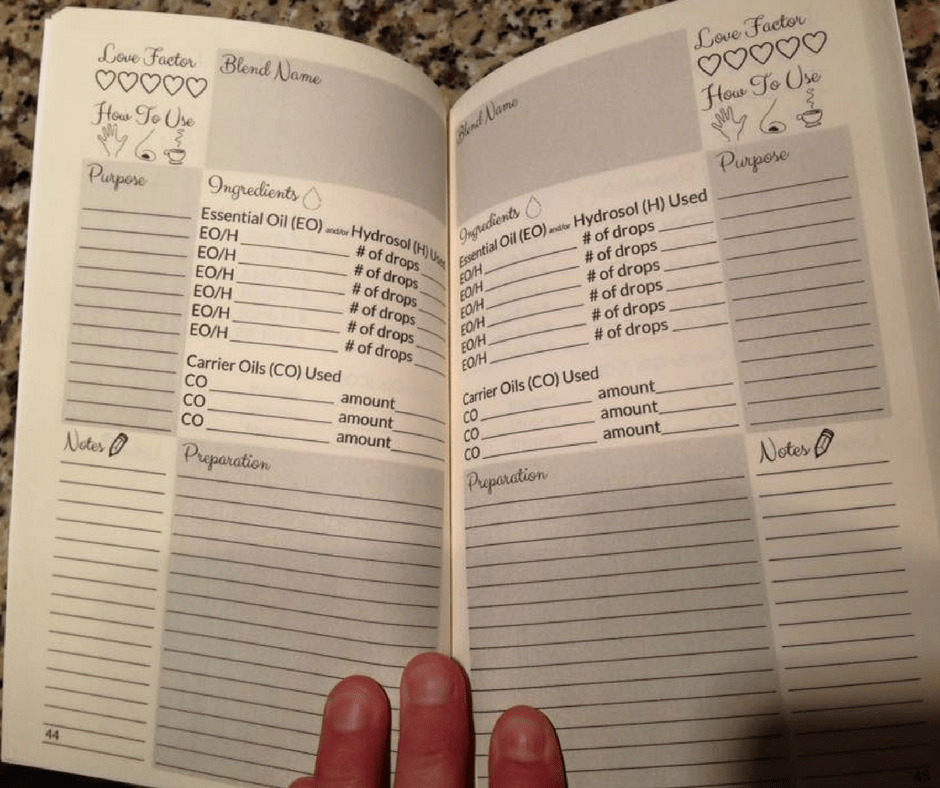 Love Factor
How To Use
Blend Name
Purpose
Ingredients
Essential Oil (EO) and/or Hydrosol (H) Used
EO/H # of drops
EO/H # of drops
EO/H # of drops
EO/H # of drops
EO/H # of drops
EO/H # of drops
Carrier Oils (CO) Used
CO amount
CO amount
CO amount
Notes
Preparation
44
Blend Name
Love Factor
How To Use
Purpose
Ingredients
Essential Oil (EO) and/or Hydrosol (H) Used
EO/H # of drops
EO/H # of drops
EO/H # of drops
EO/H # of drops
EO/H # of drops
EO/H # of drops
Carrier Oils (CO) Used
CO amount
CO amount
CO amount
Preparation
Notes
45